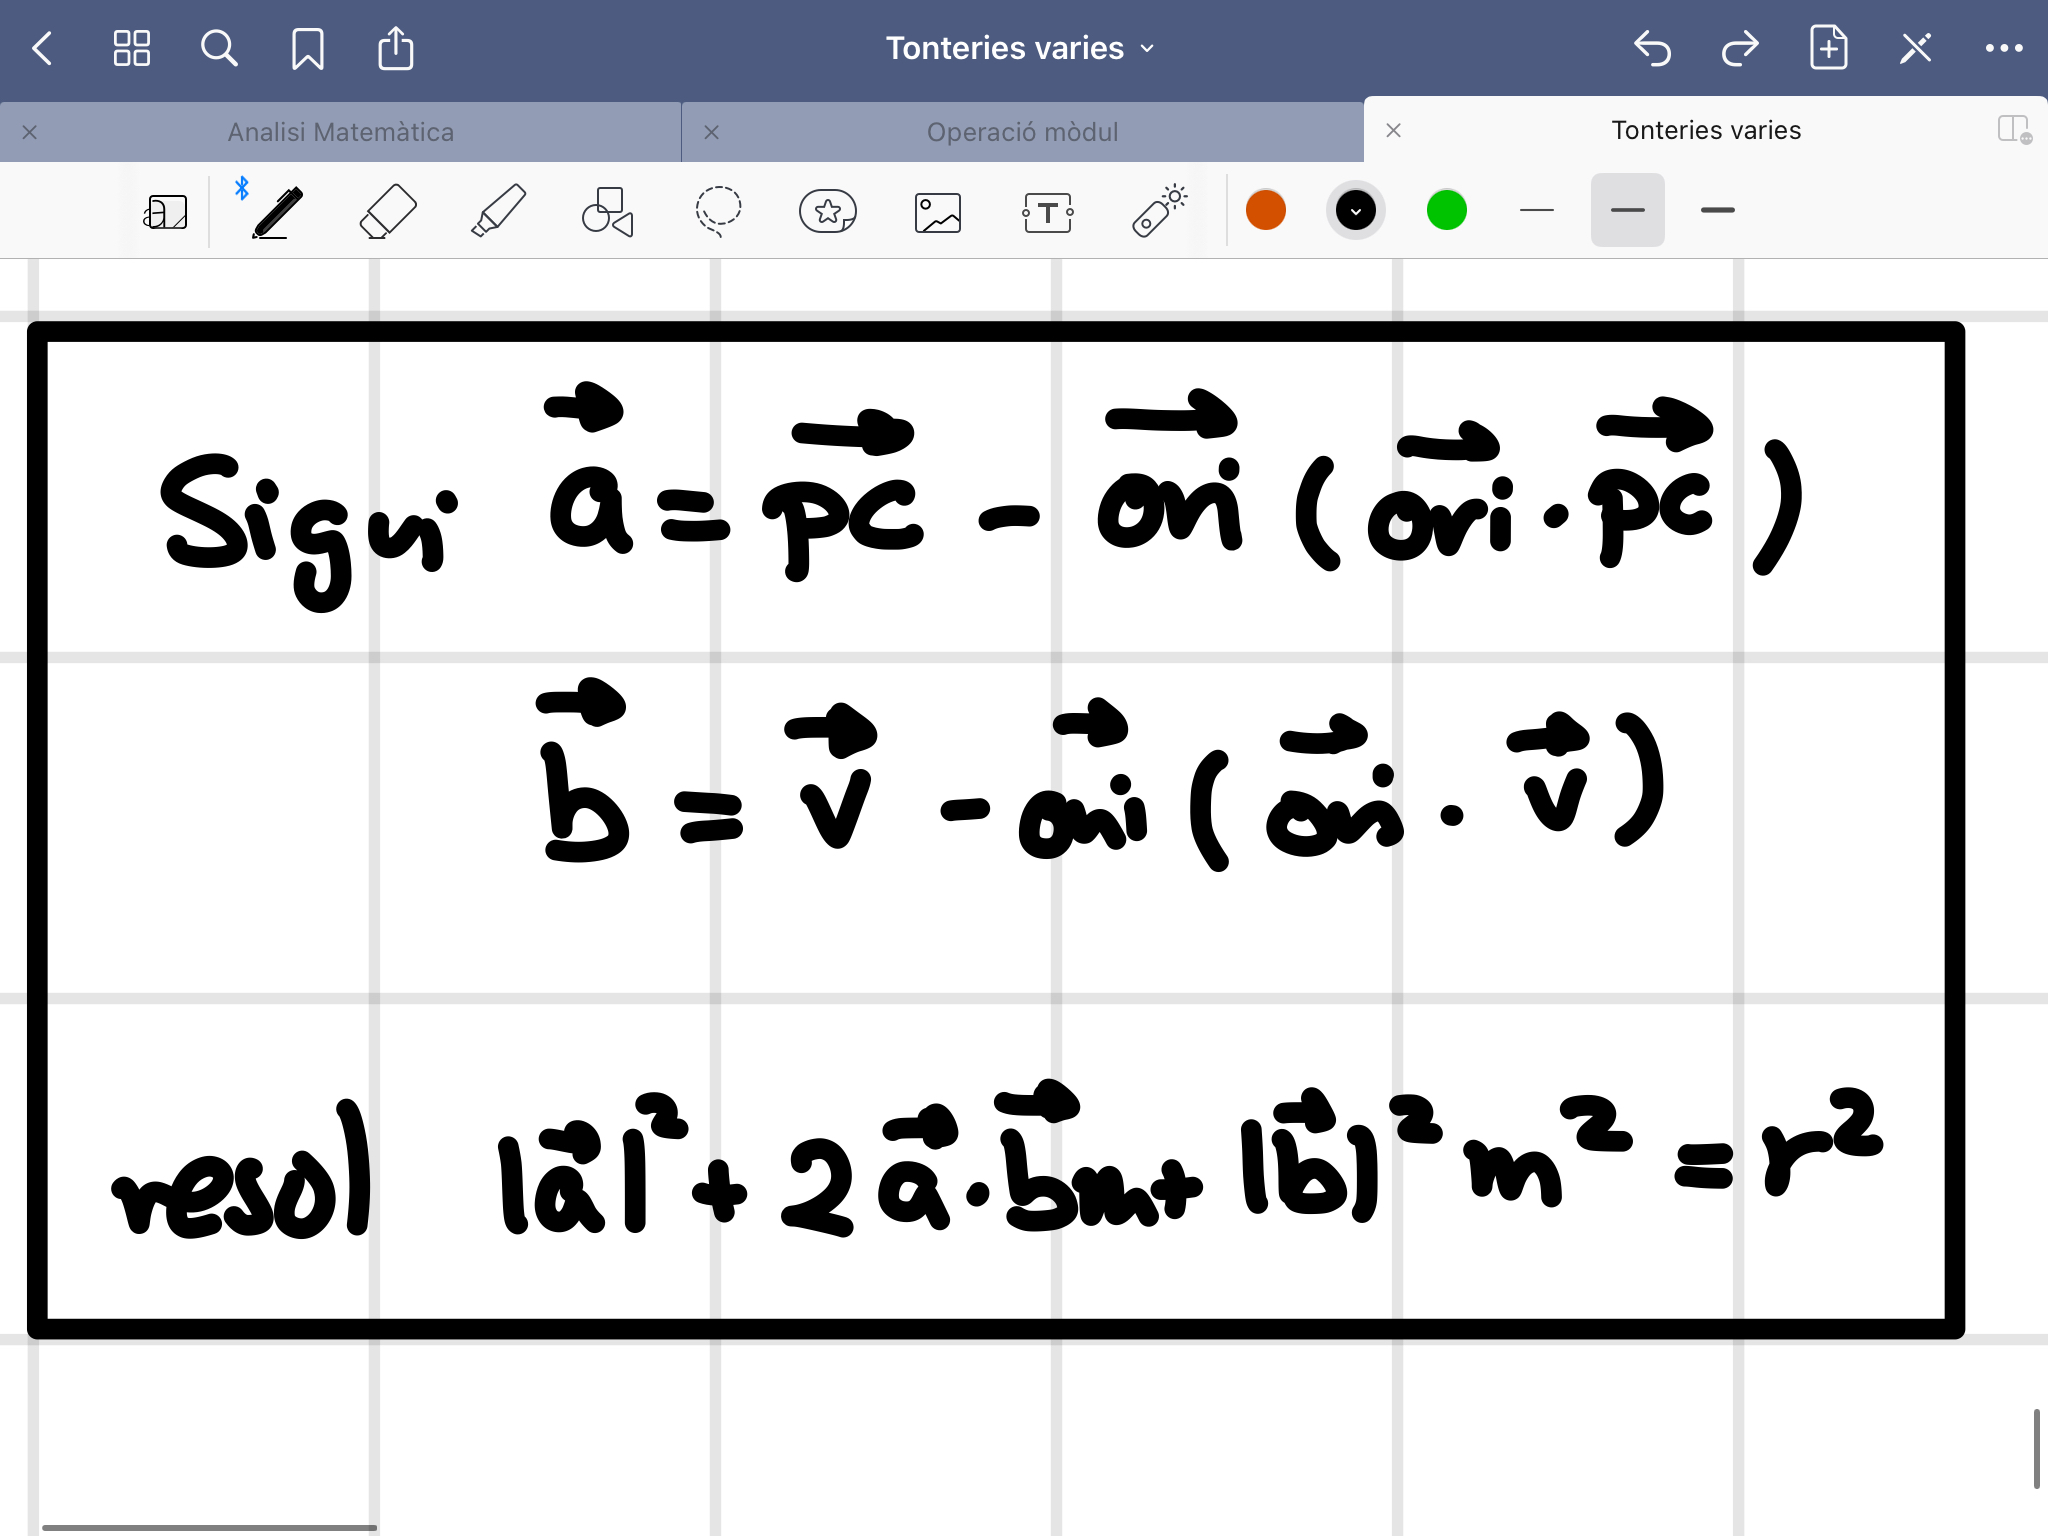 Tonteries varies
Analisi Matemàtica
Operació mòdul
Tonteries varies
T
Sigui a⃗ = p⃗c⃗ - ori⃗ (ori⃗ · pc⃗)
b⃗ = v⃗ - ori⃗ (ori⃗ · v⃗)
resol |a⃗|² + 2 a⃗ · b⃗m + |b⃗|² m² = r²